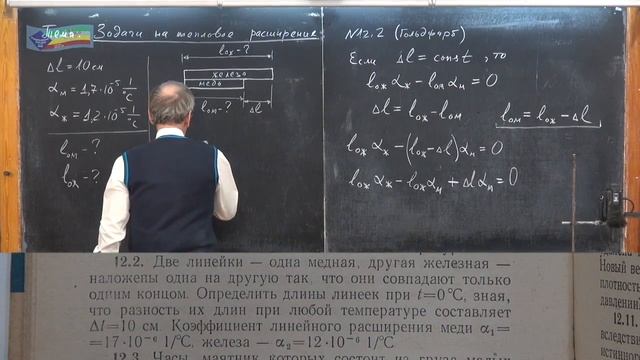 Тема: Задачи на тепловое расширение
Δl = 10 см
α_м = 1,7·10⁻⁵ 1/°C
α_ж = 1,2·10⁻⁵ 1/°C
l_ом - ?
l_ож - ?
l_ож - ?
железо
медь
l_ом - ?
Δl
N12.2 (Гольдфарб)
Если Δl = const, то
l_ож α_ж - l_ом α_м = 0
Δl = l_ож - l_ом
l_ом = l_ож - Δl
l_ож α_ж - (l_ож - Δl) α_м = 0
l_ож α_ж - l_ож α_м + Δl α_м = 0
12.2. Две линейки — одна медная, другая железная —
наложены одна на другую так, что они совпадают только
одним концом. Определить длины линеек при t=0 °C, зная,
что разность их длин при любой температуре составляет
Δl=10 см. Коэффициент линейного расширения меди α₁=
=17·10⁻⁶ 1/°C, железа — α₂=12·10⁻⁶ 1/°C
12.3. Часы, маятник которых состоит из
Новый
плотность
давлении
12.11.
вследств